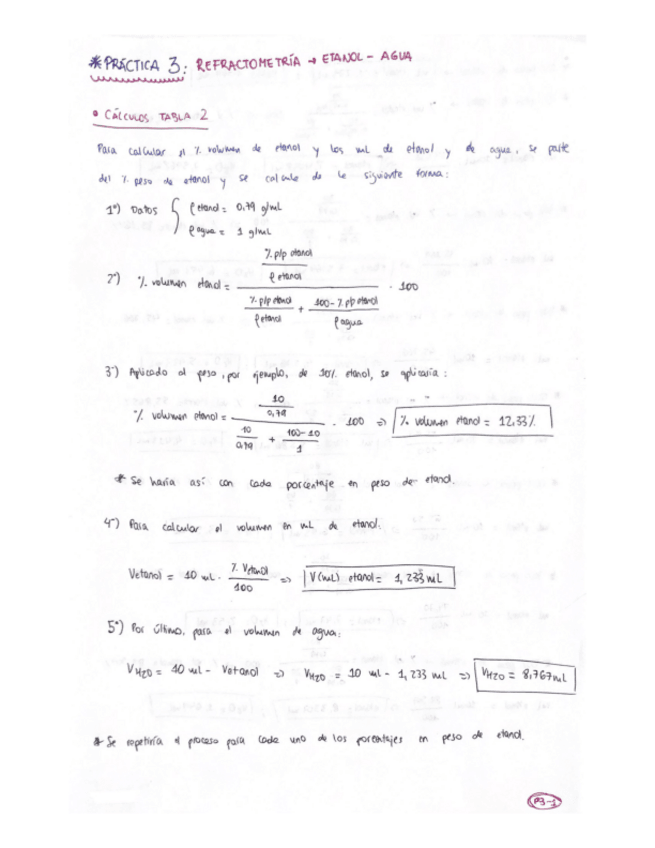 *PRÁCTICA 3: REFRACTOMETRÍA → ETANOL - AGUA
• CÁLCULOS TABLA 2
Para calcular el % volumen de etanol y los mL de etanol y de agua, se parte
del % peso de etanol y se calcula de la siguiente forma:
1º) Datos { ρ etanol = 0,79 g/mL
ρ agua = 1 g/mL
2º) % volumen etanol = (% p/p etanol / ρ etanol) / (% p/p etanol / ρ etanol + 100 - % p/p etanol / ρ agua) · 100
3º) Aplicado al peso, por ejemplo, de 10% etanol, se aplicaría:
% volumen etanol = (10 / 0,79) / (10 / 0,79 + 100-10 / 1) · 100 ⇒ % volumen etanol = 12,33%
* Se haría así con cada porcentaje en peso de etanol.
4º) Para calcular el volumen en mL de etanol:
Vetanol = 10 mL · % Vetanol / 100 ⇒ V(mL) etanol = 1,233 mL
5º) Por último, para el volumen de agua:
VH2O = 10 mL - Vetanol ⇒ VH2O = 10 mL - 1,233 mL ⇒ VH2O = 8,767 mL
* Se repetiría el proceso para cada uno de los porcentajes en peso de etanol.
P3-1